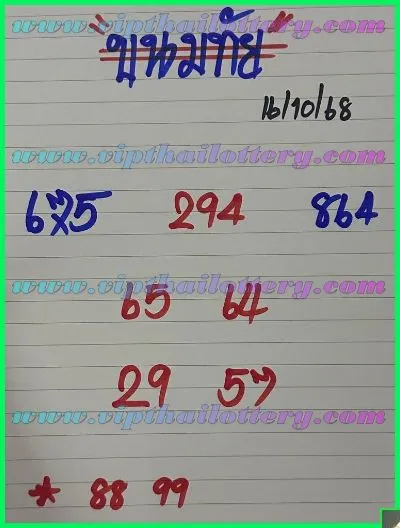 www.vipthailottery.com
"ขุนมทัย"
16/10/68
www.vipthailottery.com
675 294 864
www.vipthailottery.com
65 64
29 57
www.vipthailottery.com
* 88 99